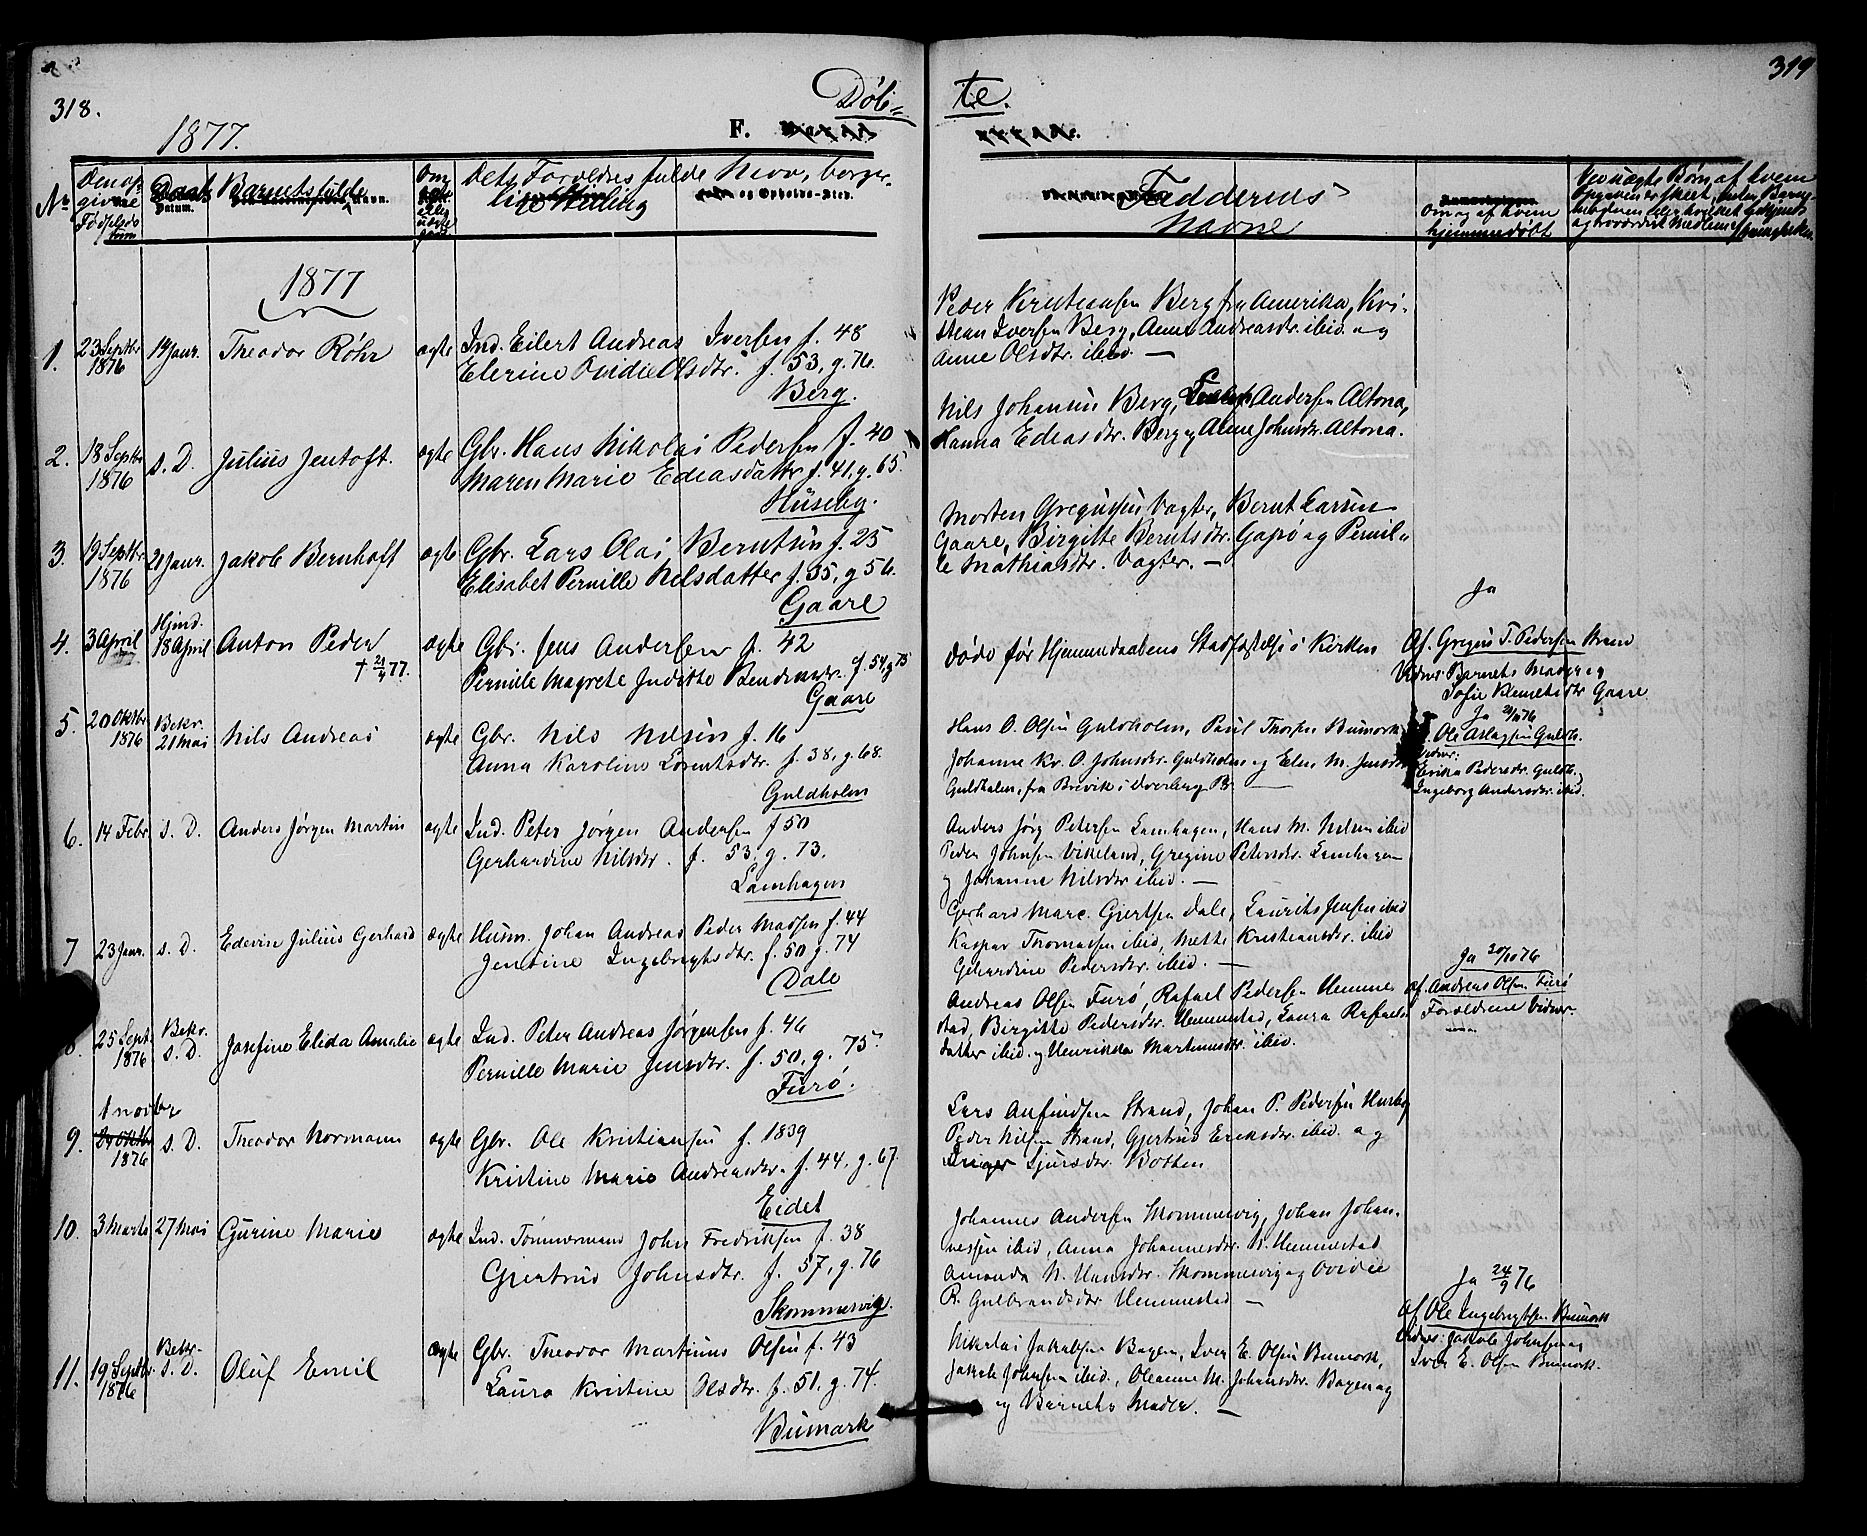 318.
Døb=
te.
319
1877.
F.
No
Den op-
givne
Fødselsdatum
Daab
Datum.
Barnets fulde
Navn.
Om
ægte
eller
uægte
født
Dets Forældres fulde Navn, borger-
lige Stilling
og Opholds-Sted.
Faddernes
Navne
Om og af hvem
hjemmedøbt
1877
1.
23 Septbr
1876
14 Janr.
Theodor Røhr
ægte
Ind. Eilert Andreas Iversen f. 48
Elerine Ovidie Olsdtr. f. 53, g. 76.
Berg.
Peder Kristensen Berg fra Amerika, Kri-
stian Iversen Berg, Anne Andreasdr. ibid og
Anne Olsdtr. ibid. —
2.
18 Septbr
1876
s. D.
Julius Jentoft.
ægte
Gbr. Hans Nikolai Pedersen f. 40
Maren Marie Edeasdatter f. 41, g. 65.
Huseby.
Nils Johansen Berg, Andersen Altona,
Hanna Edeasdtr. Berg og Anne Johnsdr. Altona.
3.
19 Septbr
1876
21 Janr.
Jakob Bernhoft
ægte
Gbr. Lars Olai Berntsen f. 25
Elisabet Pernille Nilsdatter f. 35, g 56.
Gaare
Morten Gregusen Vagter, Bernt Larsen
Gaare, Birgitte Berntsdtr. Gapø og Pernil-
le Mathiasdtr. Vagter. —
4.
3 April
77.
Hjmd.
18 April
Anton Peder
† 21/4 77.
ægte
Gbr. Jens Andersen f. 42
Pernille Magrete Juditte f. 54, g 75
Gaare
døde før Hjemmedaabens Stadfæstelse i Kirken
Ja
Af. Gregus T. Pedersen Strand
Vidner Barnets Moder og
Sofie Gaare
5.
20 Oktbr
1876
Bekr.
21 Mai
Nils Andreas
ægte
Gbr. Nils Nilsen f. 16
Anna Karoline Lorentsdtr. f. 38, g. 68.
Guldholm
Hans O. Olsen Guldholm, Paul Bumark
Johanne Kr. O. Johnsdr. Guldholm og Elen M. Jensdr.
Guldholm, fra Brevik i
Ja 76
Ole Aslagsen Guldh.
Vidner:
Erika Pedersdr. Guldh. og
Ingeborg Andersdr. ibid.
6.
14 Febr
s. D.
Anders Jørgen Martin
ægte
Ind. Peter Jørgen Andersen f 50
Gerhardine Nilsdr. f. 53, g. 73.
Lamhagen
Anders Jørg Petersen Lamhagen, Hans M. Nilsen ibid
Peder Johnsen Vikeland, Gregine Petersdr. Lamhagen
og Johanne Nilsdr ibid. —
7
23 Janr.
s. D.
Edevin Julius Gerhard
ægte
Husm. Johan Andreas Peder Madsen f. 44
Jensine Ingebrigtsdtr. f. 50 g. 74
Dale
Gerhard Marc. Gjertsen Dale, Laurits Jensen ibid
Kaspar Thomassen ibid, Mette Kristiansdr. ibid
Gerhardine Pedersdr. ibid. —
8.
25 Sept.
1876
Bekr.
s. D.
Josefine Elida Amalie
ægte
Ind. Peter Andreas Jørgensen f. 46
Pernille Marie Jensdtr. f. 50, g. 75
Furø.
Andreas Olsen Furø, Rafael Pedersen Hemme
stad, Birgitte Pedersdtr. Hemmestad, Laura Rafaels
datter ibid. og Henrikka Martinusdtr. ibid.
Ja 20/10 76
af. Andreas Olsen Furø
Forældrene Vidner
9.
1 novbr
1876
s. D.
Theodor Normann
ægte
Gbr. Ole Kristiansen f. 1839
Kristine Marie Andreasdtr. f. 44, g. 67.
Eidet
Lars Anfindsen Strand, Johan P. Pedersen Huseby
Peder Nilsen Strand, Gjertrud Eriksdtr. ibid. og
Sjursdtr. Botten
10.
3 Marts
27 Mai
Gurine Marie
ægte
Ind. Tømmermand John Fredriksen f. 38
Gjertrud Johnsdtr. f. 57, g. 76
Skommesvig.
Johannes Andersen Skommesvig, Johan Johan-
nessen ibid, Anna Johannesdr. N. Hemmestad
Amanda N. Hansdr. Skommesvig og Ovidie
R. Gulbrandsdr Hemmestad —
11.
19 Septbr.
1876
Bekr.
s. D.
Oluf Emil
ægte
Gbr. Theodor Martinus Olsen f. 43
Laura Kristine Olsdtr. f. 51, g. 74.
Bumark
Nikolai Jakobsen Bogen, Iver E. Olsen Bumark,
Jakob Johnsen ibid., Oleanne M. Johansdtr. Bogen og
og Barnets Moder. —
Ja 24/9 76
af Ole Ingebrigtsen Bumark
Vidner: Jakob Johnsen og
Iver E. Olsen Bumark.